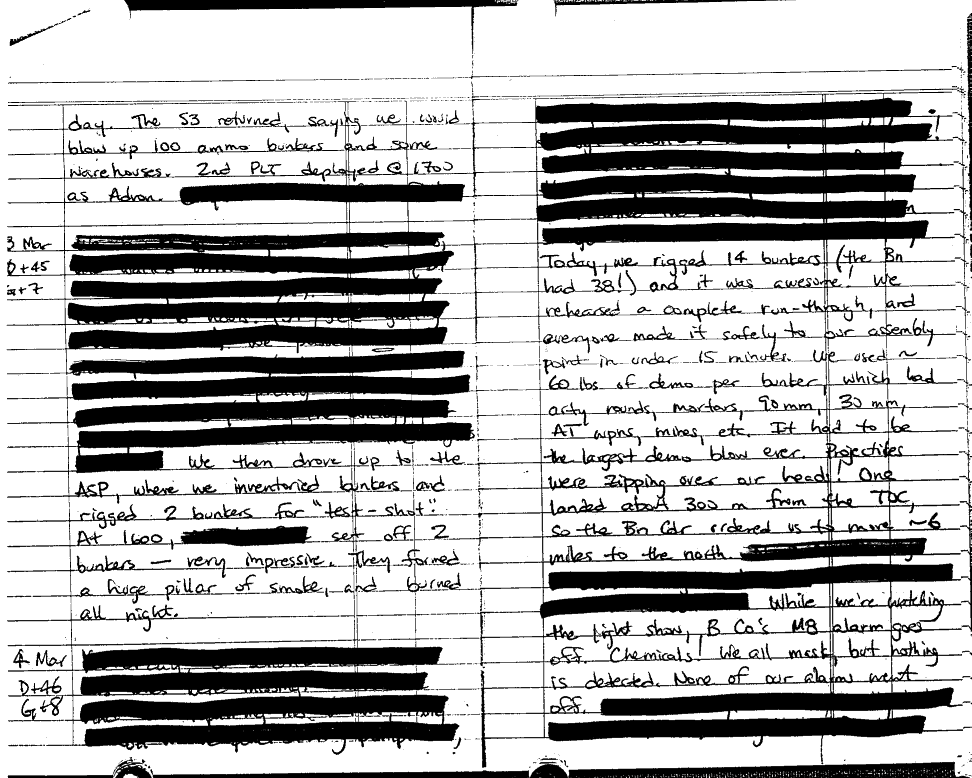 day. The S3 returned, saying we would
blow up 100 ammo bunkers and some
warehouses. 2nd PLT deployed @ 1700
as Advon.
3 Mar
D+45
G+7
We then drove up to the
ASP, where we inventoried bunkers and
rigged 2 bunkers for "test-shot".
At 1600, set off 2
bunkers — very impressive. They formed
a huge pillar of smoke, and burned
all night.
4 Mar
D+46
G+8
!
Today, we rigged 14 bunkers (the Bn
had 38!) and it was awesome! We
rehearsed a complete run-through, and
everyone made it safely to our assembly
point in under 15 minutes. We used ~
60 lbs of demo per bunker, which had
arty rounds, mortars, 90mm, 30mm,
AT wpns, mines, etc. It had to be
the largest demo blow ever. Projectiles
were zipping over our heads! One
landed about 300 m from the TOC,
so the Bn Cdr ordered us to move ~6
miles to the north.
While we're watching
the light show, B Co's M8 alarm goes
off. Chemicals! We all mask, but nothing
is detected. None of our alarms went
off.